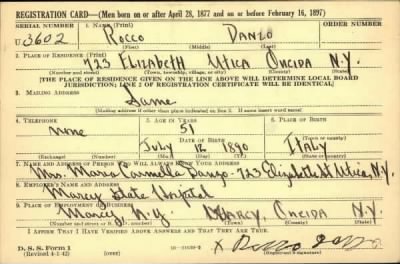 REGISTRATION CARD—(Men born on or after April 28, 1877 and on or before February 16, 1897)
SERIAL NUMBER 1. NAME (Print) ORDER NUMBER
U 3602 Rocco Danzo
(First) (Middle) (Last)
2. PLACE OF RESIDENCE (Print)
723 Elizabeth Utica Oneida N.Y.
(Number and street) (Town, township, village, or city) (County) (State)
[THE PLACE OF RESIDENCE GIVEN ON THE LINE ABOVE WILL DETERMINE LOCAL BOARD
JURISDICTION; LINE 2 OF REGISTRATION CERTIFICATE WILL BE IDENTICAL]
3. MAILING ADDRESS
Same
[Mailing address if other than place indicated on line 2. If same insert word same]
4. TELEPHONE 5. AGE IN YEARS 6. PLACE OF BIRTH
none 51
DATE OF BIRTH (Town or county)
July 12 1890 Italy
(Exchange) (Number) (Mo.) (Day) (Yr.) (State or country)
7. NAME AND ADDRESS OF PERSON WHO WILL ALWAYS KNOW YOUR ADDRESS
Mrs. Maria Carmella Danzo - 723 Elizabeth St Utica, N.Y.
8. EMPLOYER'S NAME AND ADDRESS
Marcy State Hospital
9. PLACE OF EMPLOYMENT OR BUSINESS
Marcy, N.Y. Marcy, Oneida N.Y.
(Number and street or R. F. D. number) (Town) (County) (State)
I AFFIRM THAT I HAVE VERIFIED ABOVE ANSWERS AND THAT THEY ARE TRUE.
D. S. S. Form 1
(Revised 4-1-42) (over) x Rocco Danzo